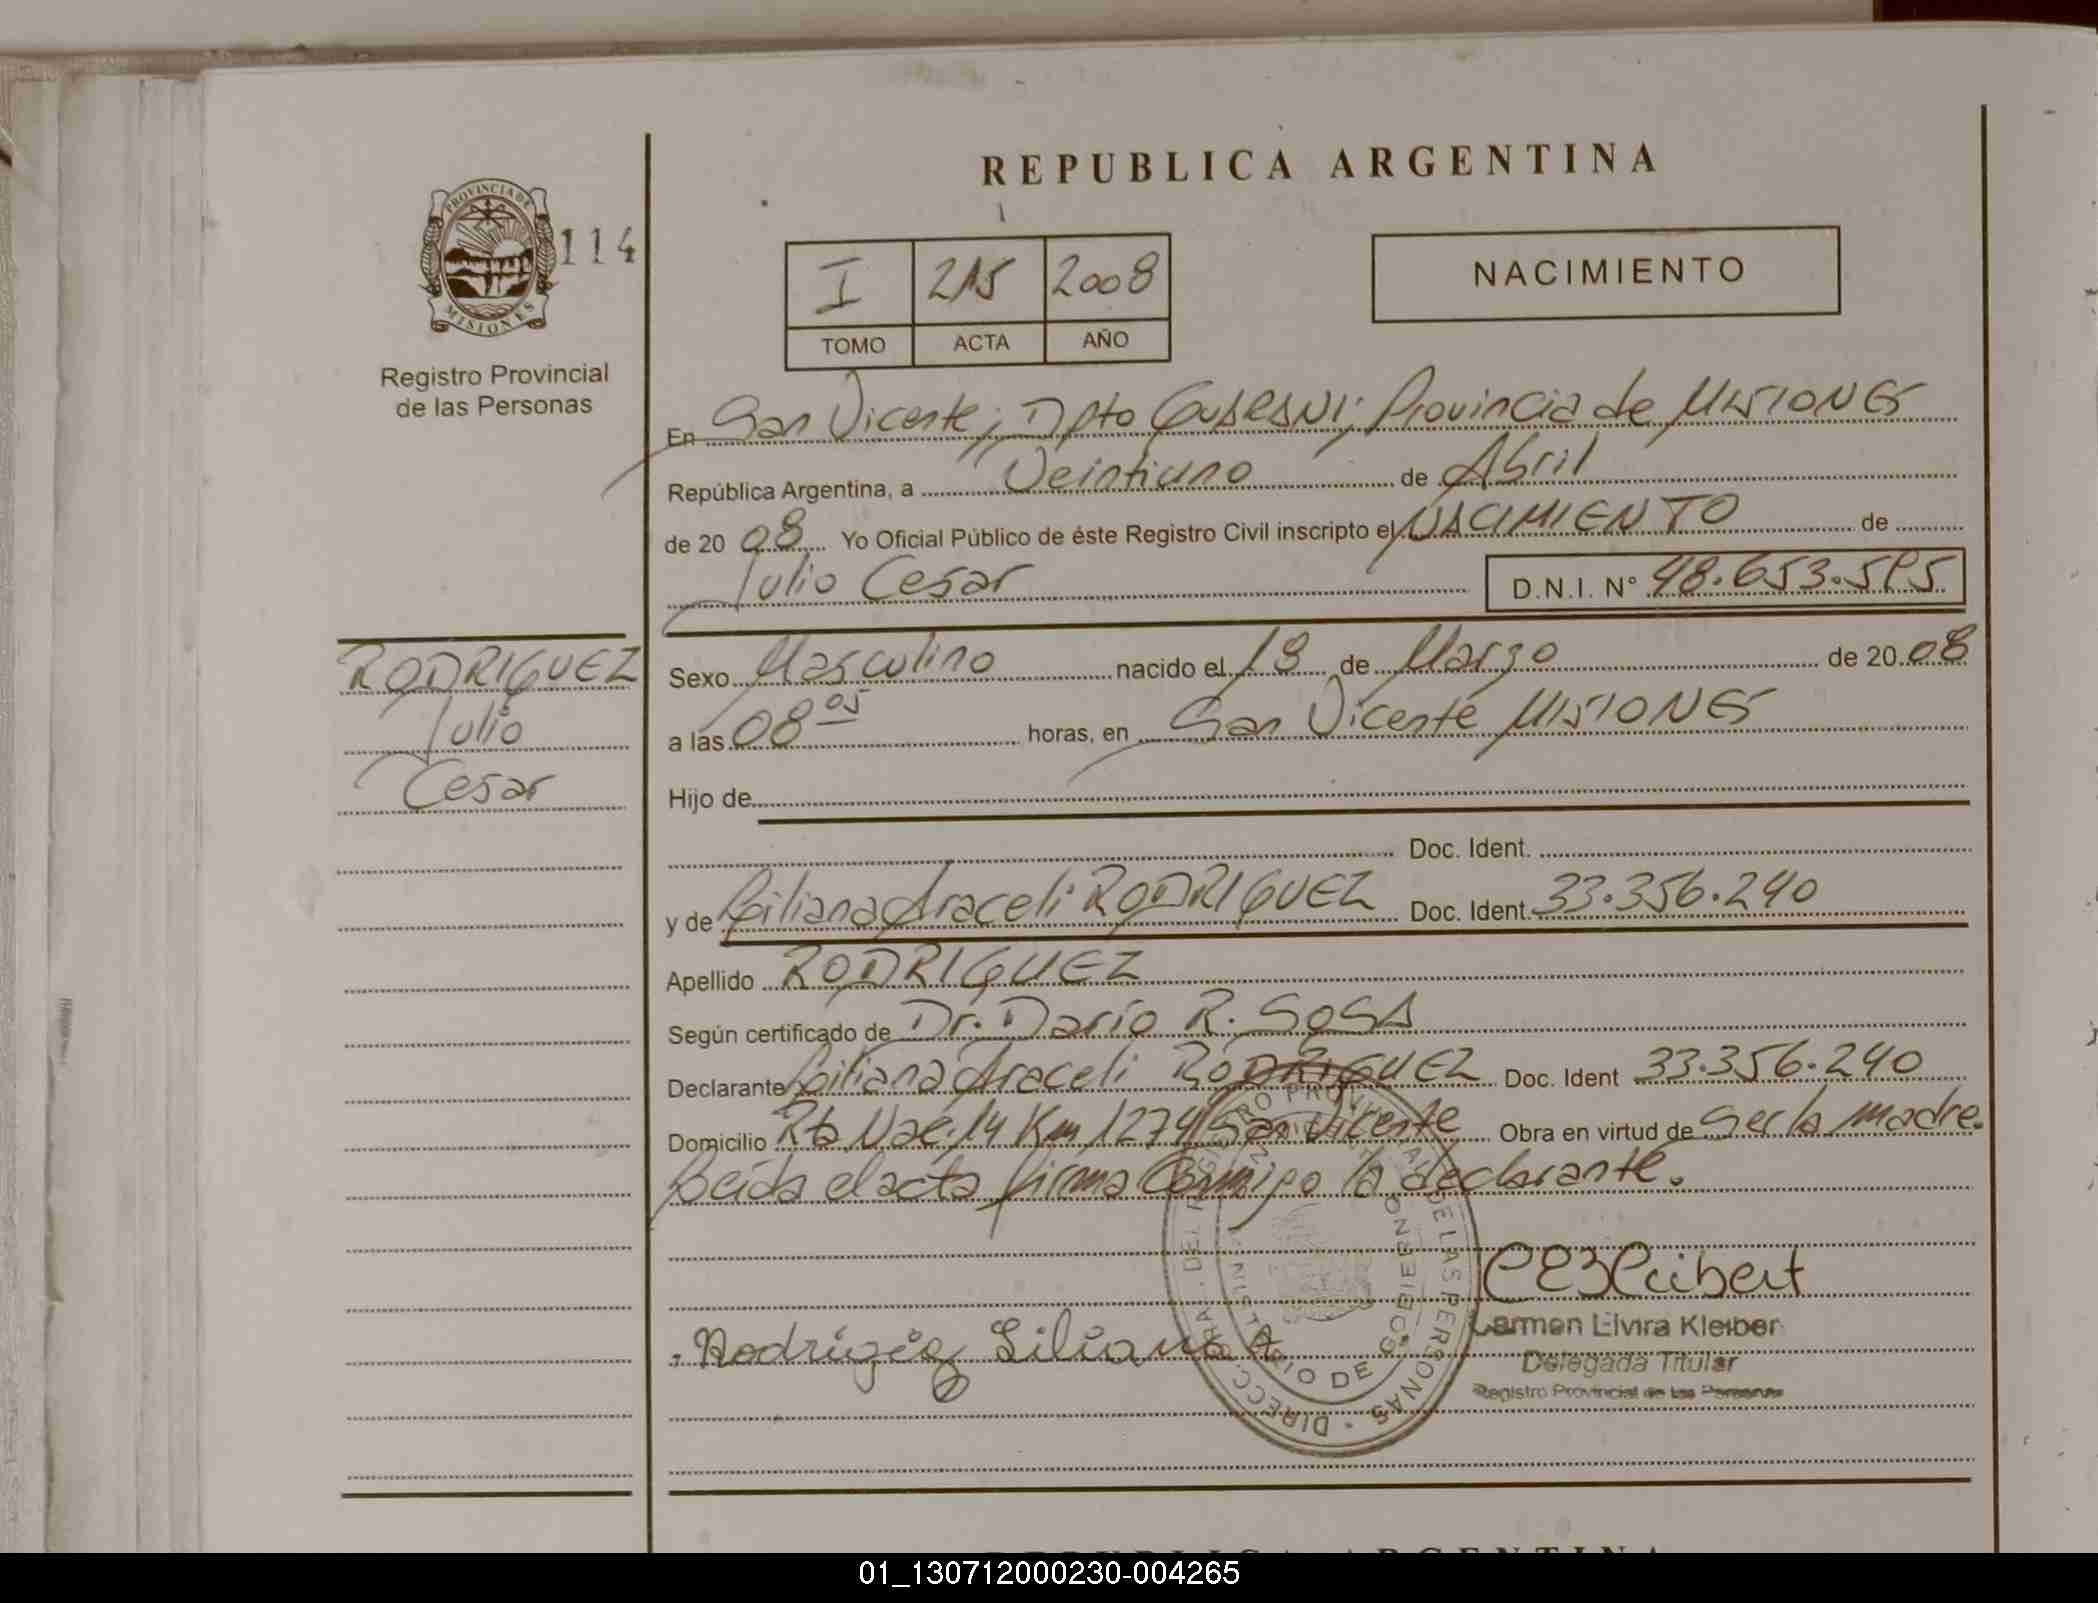 REPUBLICA ARGENTINA
PROVINCIA DE
MISIONES
114
Registro Provincial
de las Personas
I 215 2008
TOMO ACTA AÑO
NACIMIENTO
En San Vicente; Dpto GUARANI; Provincia de MISIONES
República Argentina, a Veintiuno de Abril
de 20 08 Yo Oficial Público de éste Registro Civil inscripto el NACIMIENTO de
Julio Cesar D.N.I. N°
RODRIGUEZ
Julio
Cesar
Sexo Masculino nacido el de Marzo de 20 08
a las 08 05 horas, en San Vicente MISIONES
Hijo de
Doc. Ident.
y de Liliana Araceli RODRIGUEZ Doc. Ident. 33.356.240
Apellido RODRIGUEZ
Según certificado de Dr. Dario R. SOSA
Declarante Liliana Araceli RODRIGUEZ Doc. Ident 33.356.240
Domicilio Rta Nac. 14 Km 1274 San Vicente Obra en virtud de Ser la madre.
Leida el acta firma Conmigo la declarante.
Rodríguez Liliana A
Carmen Elvira Kleiber
Delegada Titular
Registro Provincial de las Personas
DIRECC. GRA. DEL REGISTRO PROVINCIAL DE LAS PERSONAS
MINISTERIO DE GOBIERNO
REPUBLICA ARGENTINA
01_130712000230-004265